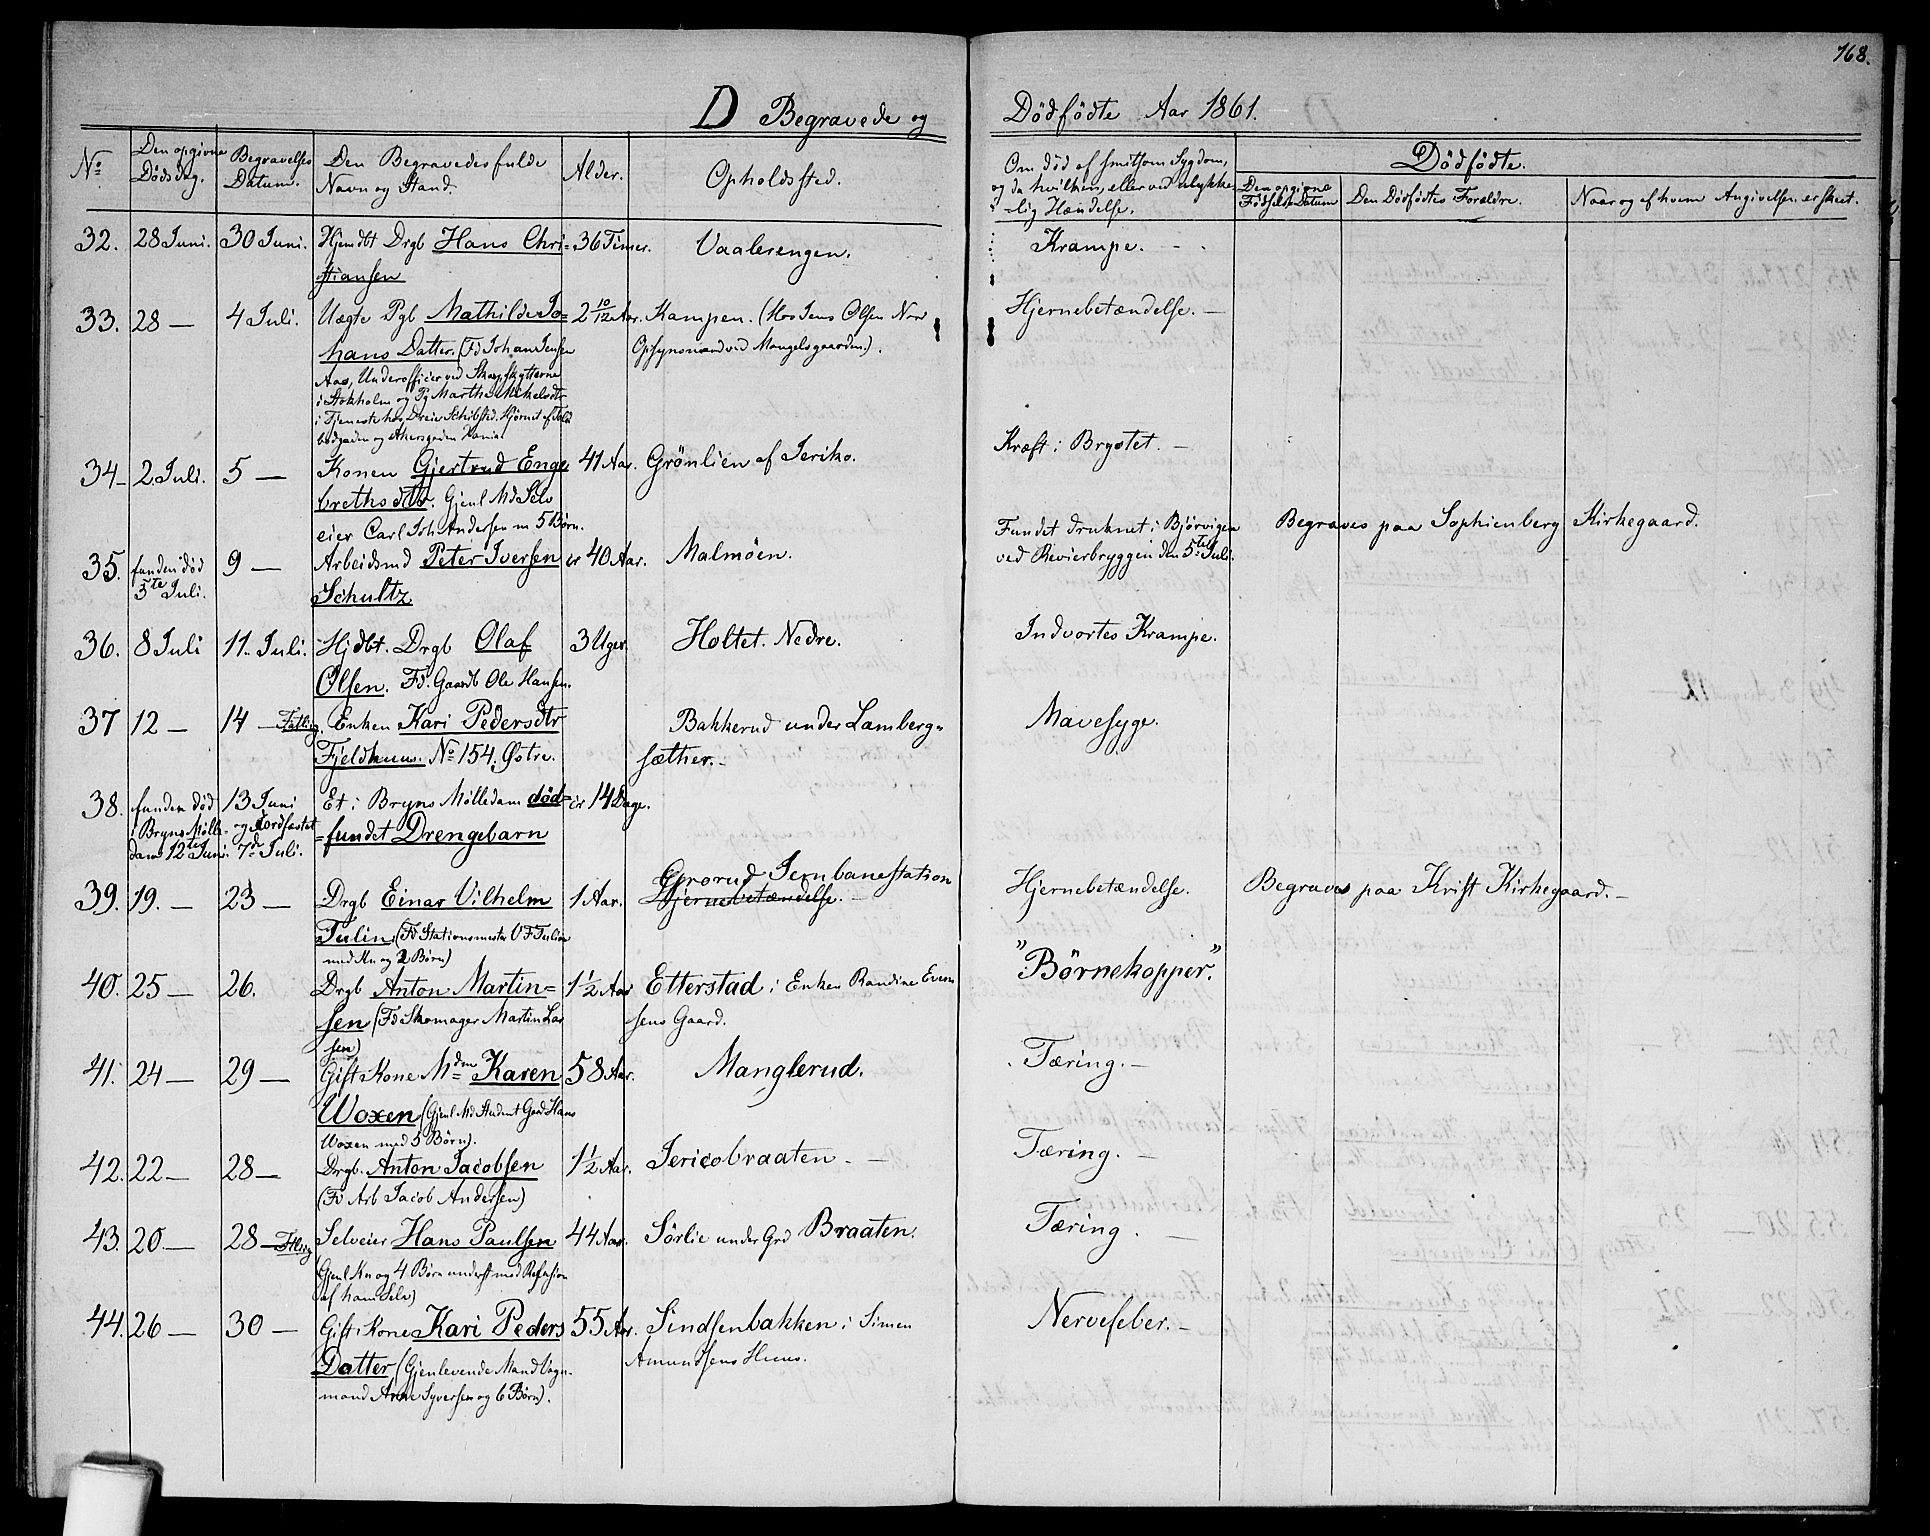 168.
D Begravede og Dödfödte Aar 1861.
No
Den opgivne Dödsdag.
Begravelses Datum.
Den Begravedes fulde Navn og Stand.
Alder.
Opholdssted.
Om död af smitsom Sygdom, og da hvilken, eller ved ulykke-lig Hændelse.
Dödfödte.
Den opgivne Födsels Datum
Den Dödfödtes Forældre.
Naar og af hvem Angivelsen er skeet.
32. 28 Juni. 30 Juni. Hjemdbt Drgb Hans Chri= 36 Timer. Vaalerengen. Krampe.
stiansen
33. 28 — 4 Juli. Uægte Pgb Mathilde Jo= 2 10/12 Aar. Kampen. (Hos Jens Olsen Nord Hjernebetændelse. —
hans Datter. (Fd Johan Jensen Opsynsmand ved Mangelsgaarden.).
Aas, Underofficier ved Skarpskytterne
i Stokholm og Pg Marthe Mikelsdtr
i Tjeneste hos Dreier Schibsted. Hjörnet af
bodgaden og Akersgaden Xania.
34 — 2 Juli. 5 — Konen Gjertrud Enge 41 Aar. Grönlien af Jeriko. Kræft i Brystet. —
brethsdtr. Gjenl Md Selv
eier Carl Joh Andersen m 5 Börn.
35. funden död 5te Juli. 9 — Arbeidsmd Peter Iversen cr 40 Aar. Malmöen. Fundet druknet i Björvigen ved Revierbryggen den 5te Juli. Begraves paa Sophienberg Kirkegaard.
Schultz
36. 8 Juli 11. Juli. Hjdbt. Drgb Olaf 3 Uger. Holtet. Nedre. Indvortes Krampe.
Olsen. Fd. Gaardb Ole Hansen.
37 12 — 14 — Fattig. Enken Kari Pedersdtr Bakkerud under Lamberg= Mavesyge.
Fjeldhuus. No 154. Östre. sæther. —
38. funden död 13 Juni Et i Bryns Mölledam död= cr 14 Dage.
i Bryns Mölle- og Jordfæstet =fundet Drengebarn
dam 12te Juni. 7de Juli.
39. 19. — 23 — Drgb Einar Vilhelm 1 Aar. Grorud Jernbanestation Hjernebetændelse. Begraves paa Krist Kirkegaard. —
Hjernebetændelse. —
Tulin. (Fd Stationsmester V F Tulin
med Kn og 2 Börn)
40. 25 — 26. Drgb Anton Martin= 1 1/2 Aar Etterstad i Enken Randine Even "Börnekopper".
sen (Fd Skomager Martin Lar sens Gaard.
sen)
41. 24 — 29 — Gift Kone Mdm Karen 58 Aar. Manglerud. Tæring. —
Woxen (Gjenl Md Student Grd Hans
Woxen med 5 Börn).
42. 22 — 28 — Drgb. Anton Jacobsen 1 1/2 Aar. Jericobraaten. — Tæring. —
(Fd Arb Jacob Andersen)
43. 20 — 28 — Fttig Selveier Hans Paulsen 44 Aar. Sörlie under Grd Braaten. Tæring. —
(Gjenl Kn og 4 Börn underst med Refusion
af ham Selv)
44. 26 — 30 — Gift Kone Kari Peders 55 Aar. Sindsenbakken i Simen Nervefeber. —
Datter (Gjenlevende Mand Vogn- Amundsens Huus.
mand Arne Syversen og 6 Börn).